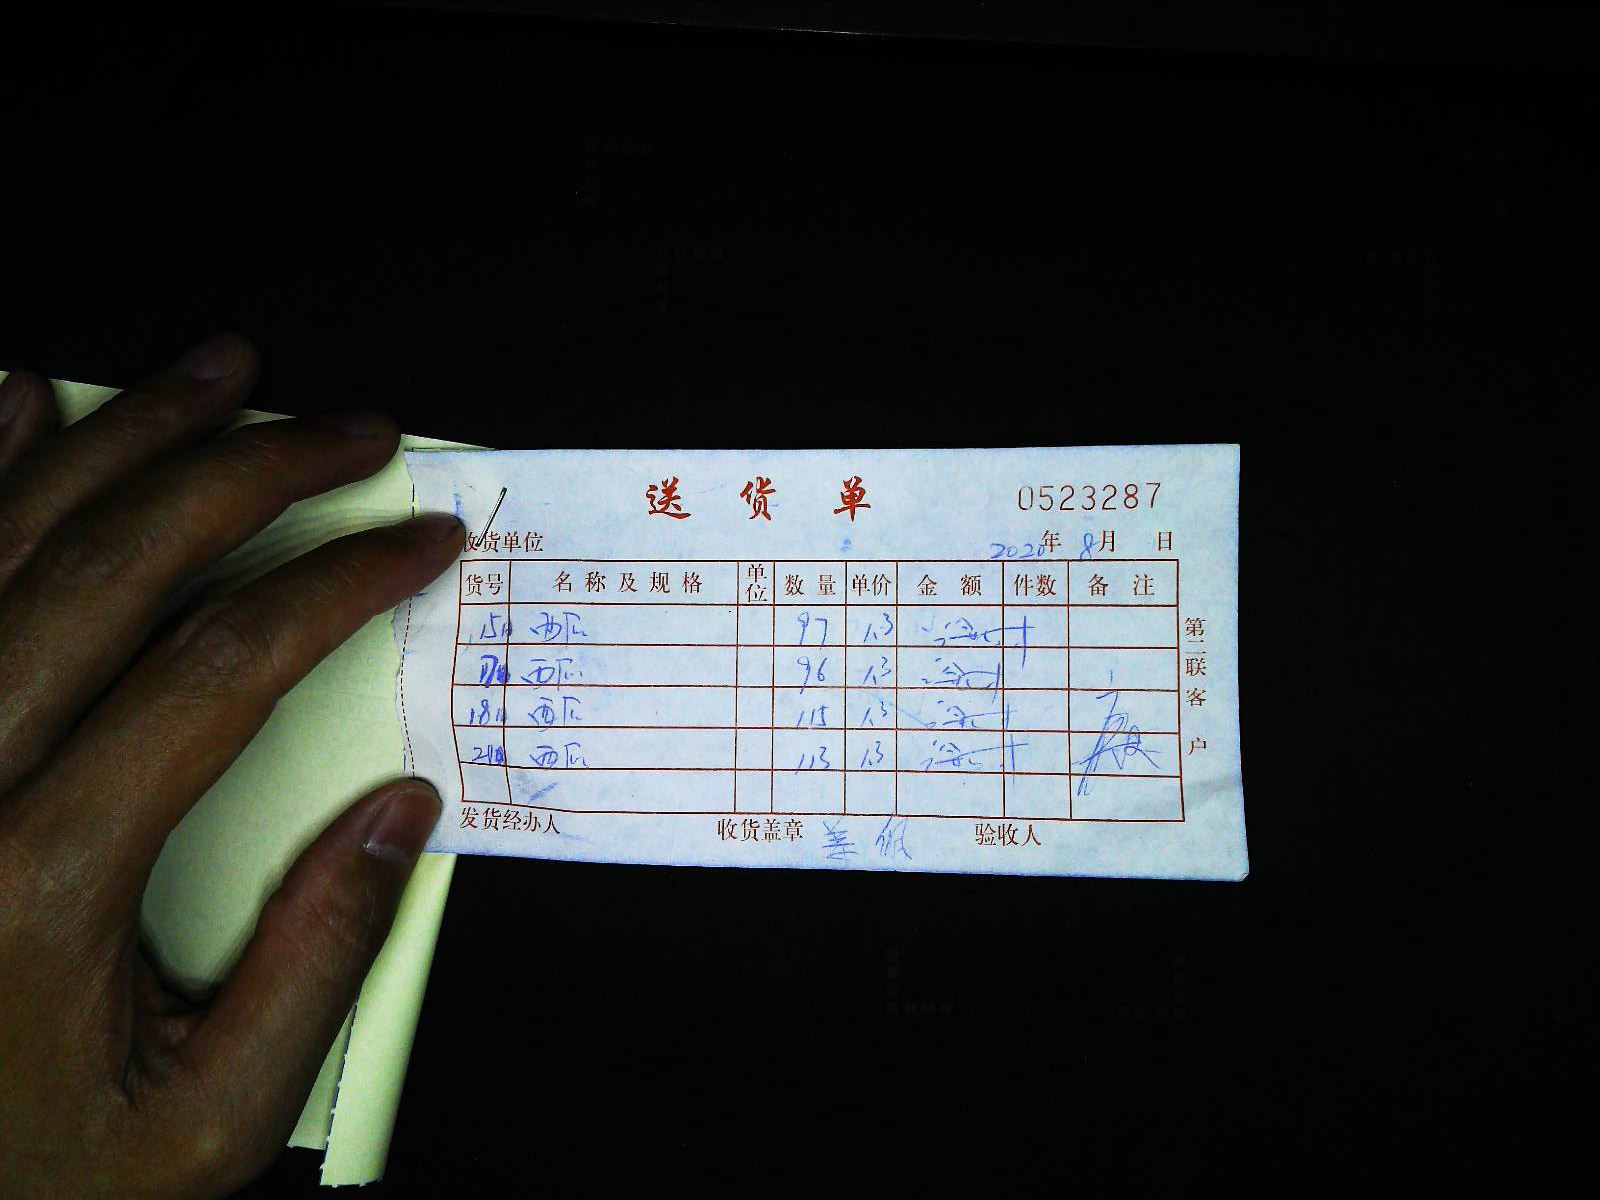 送货单 0523287
收货单位 2020年 8月 日
货号 名称及规格 单位 数量 单价 金额 件数 备注
15日 西瓜 97 1.3
17日 西瓜 96 1.3
18日 西瓜 115 1.3
21日 西瓜 113 1.3
第二联 客户
发货经办人 收货盖章 验收人